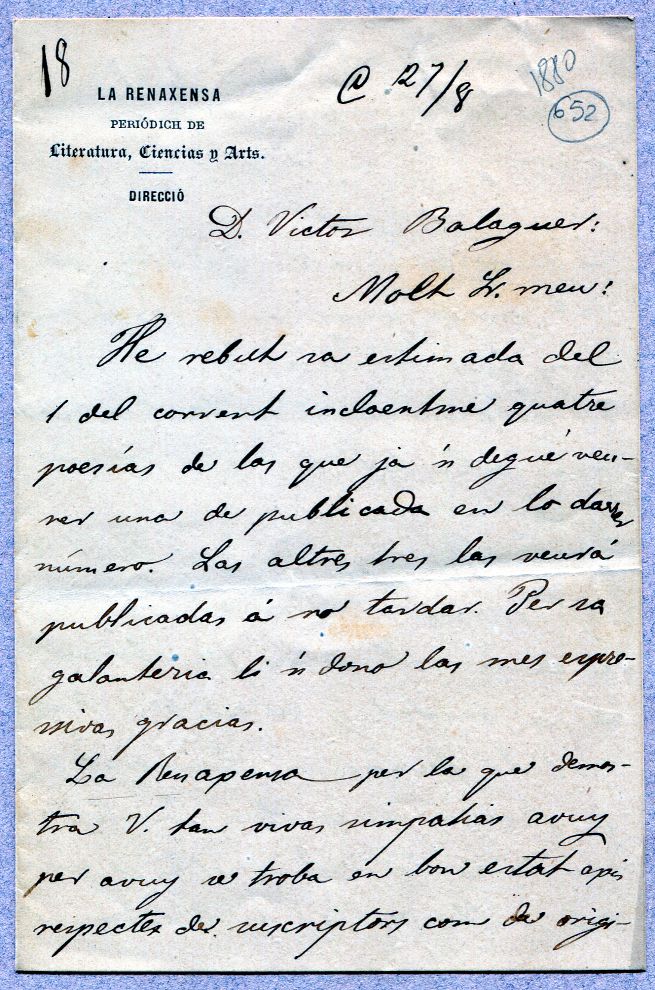 18
LA RENAXENSA
PERIÓDICH DE
Literatura, Ciencias y Arts.
DIRECCIÓ
27/8
1880
652
D. Victor Balaguer:
Molt Sr. meu:
He rebut sa estimada del
1 del corrent incloentme quatre
poesías de las que ja 'n degué veu-
rer una de publicada en lo darrer
número. Las altres tres las veurá
publicadas á no tardar. Per sa
galanteria li 'n dono las mes expre-
sivas gracias.
La Renaxensa per la que demos-
tra V. tan vivas simpatías avuy
per avuy se troba en bon estat axis
respecte de suscriptors com de origi-